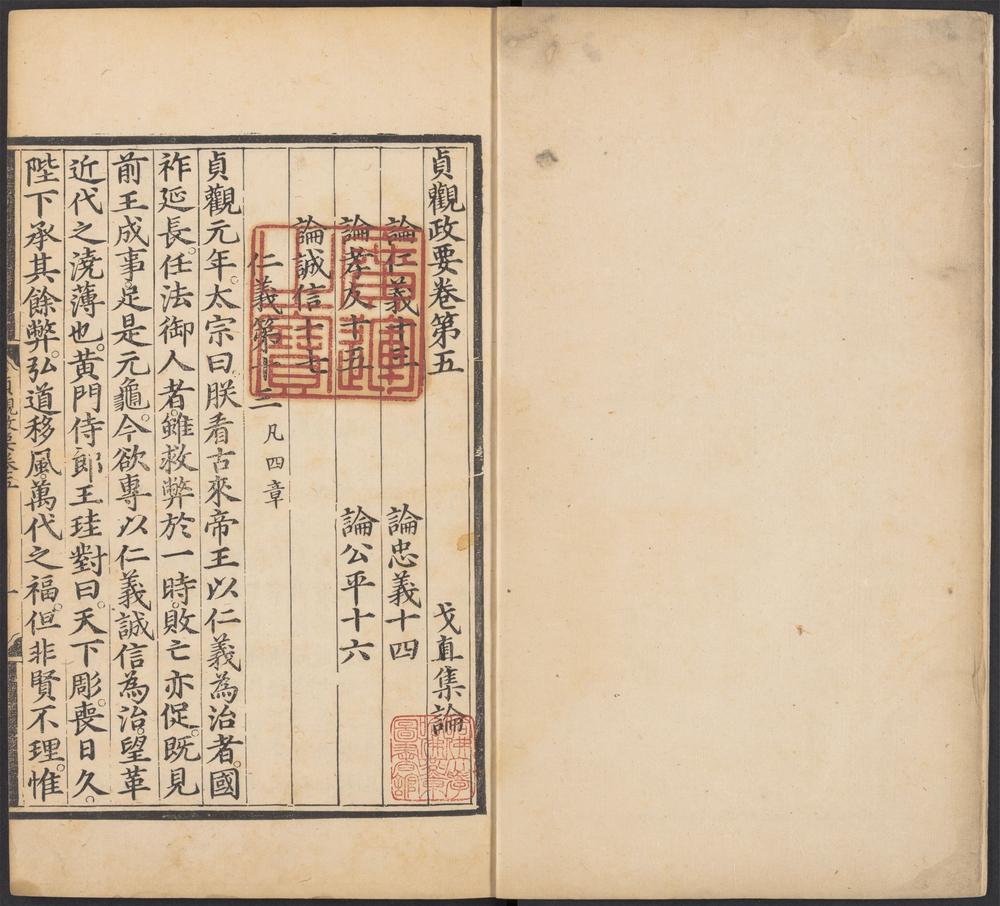 貞觀政要卷第五 戈直集論
論仁義十三 論忠義十四
論孝友十五 論公平十六
論誠信十七
仁義第十三 凡四章
貞觀元年。太宗曰。朕看古來帝王以仁義為治者。國
祚延長。任法御人者。雖救弊於一時。敗亡亦促。既見
前王成事。足是元龜。今欲專以仁義誠信為治。望革
近代之澆薄也。黃門侍郎王珪對曰。天下彫喪日久。
陛下承其餘弊。弘道移風。萬代之福。但非賢不理。惟
廣運之寶
哈佛大學哈佛燕京圖書館